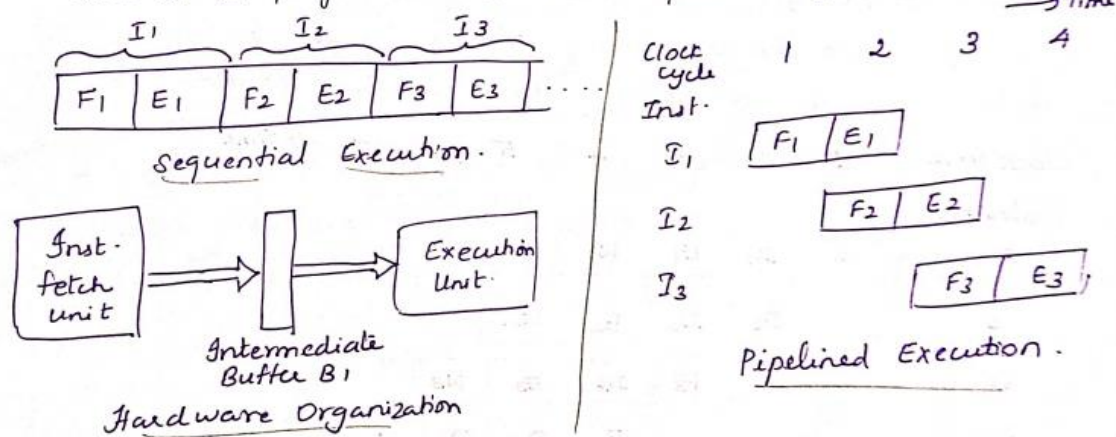 I1 I2 I3
F1 E1 F2 E2 F3 E3 ....
Sequential Execution.
Inst. fetch unit
Intermediate Buffer B1
Execution Unit.
Hardware Organization
Time
Clock cycle 1 2 3 4
Inst.
I1 F1 E1
I2 F2 E2
I3 F3 E3
Pipelined Execution.